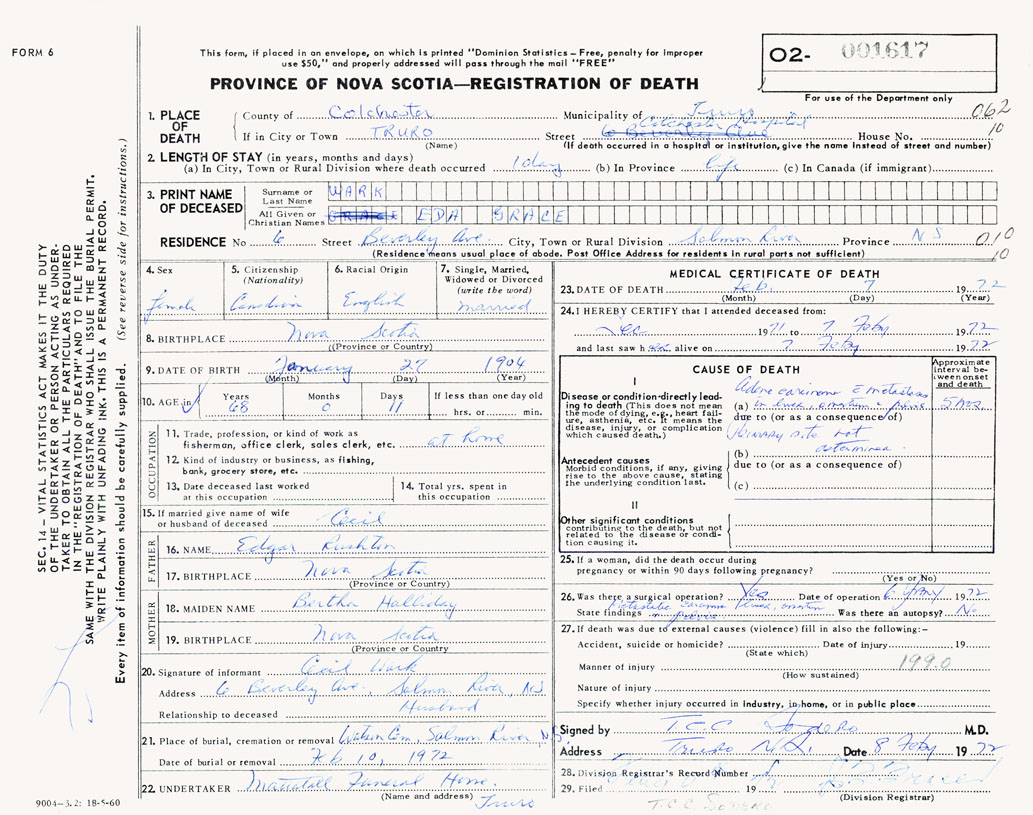 FORM 6
This form, if placed in an envelope, on which is printed "Dominion Statistics – Free, penalty for improper
use $50," and properly addressed will pass through the mail "FREE"
PROVINCE OF NOVA SCOTIA—REGISTRATION OF DEATH
O2- 001617
For use of the Department only
1. PLACE OF DEATH
County of Colchester Municipality of Truro 062
If in City or Town TRURO Street 6 Beverley Ave Colchester Hospital House No. 10
(Name) (If death occurred in a hospital or institution, give the name instead of street and number)
2. LENGTH OF STAY (in years, months and days)
(a) In City, Town or Rural Division where death occurred 1 day (b) In Province life (c) In Canada (if immigrant)
3. PRINT NAME OF DECEASED
Surname or Last Name WARK
All Given or Christian Names GRACE EDA GRACE
RESIDENCE No 6 Street Beverley Ave. City, Town or Rural Division Salmon River Province N S 010
(Residence means usual place of abode. Post Office Address for residents in rural parts not sufficient) 10
4. Sex Female
5. Citizenship (Nationality) Canadian
6. Racial Origin English
7. Single, Married, Widowed or Divorced (write the word) married
8. BIRTHPLACE Nova Scotia
((Province or Country)
9. DATE OF BIRTH January 27 1904
(Month) (Day) (Year)
10. AGE in Years 68 Months 0 Days 11 If less than one day old hrs. or min.
OCCUPATION
11. Trade, profession, or kind of work as
fisherman, office clerk, sales clerk, etc. at home
12. Kind of industry or business, as fishing,
bank, grocery store, etc.
13. Date deceased last worked
at this occupation
14. Total yrs. spent in
this occupation
15. If married give name of wife
or husband of deceased Cecil
FATHER
16. NAME Edgar Rushton
17. BIRTHPLACE Nova Scotia
(Province or Country)
MOTHER
18. MAIDEN NAME Bertha Halliday
19. BIRTHPLACE Nova Scotia
(Province or Country
20. Signature of informant Cecil Wark
Address 6 Beverley Ave., Salmon River, NS
Relationship to deceased Husband
21. Place of burial, cremation or removal Watson Cem, Salmon River, N.S.
Date of burial or removal Feb 10, 1972
22. UNDERTAKER Mattatall Funeral Home.
(Name and address) Truro
9004-3.2: 18-5-60
MEDICAL CERTIFICATE OF DEATH
23. DATE OF DEATH Feb. 7 1972
(Month) (Day) (Year)
24. I HEREBY CERTIFY that I attended deceased from:
Dec 1971 to 7 Feby 1972
and last saw her alive on 7 Feby 1972
CAUSE OF DEATH
Approximate interval between onset and death
I
Disease or condition directly leading to death (This does not mean the mode of dying, e.g., heart failure, asthenia, etc. It means the disease, injury, or complication which caused death.)
Adenocarcinoma c metastases
(a) in liver, omentum + pelvis
due to (or as a consequence of)
primary site not
determined
(b)
due to (or as a consequence of)
(c)
Antecedent causes
Morbid conditions, if any, giving rise to the above cause, stating the underlying condition last.
II
Other significant conditions
contributing to the death, but not related to the disease or condition causing it.
25. If a woman, did the death occur during
pregnancy or within 90 days following pregnancy?
(Yes or No)
26. Was there a surgical operation? Yes Date of operation 1972
State findings Metastatic carcinoma Was there an autopsy? No
27. If death was due to external causes (violence) fill in also the following:–
Accident, suicide or homicide? Date of injury 19
(State which)
Manner of injury 199.0
(How sustained)
Nature of injury
Specify whether injury occurred in industry, in home, or in public place
Signed by T.C.C. Sodero M.D.
Address Truro N.S. Date 8 Feby 1972
28. Division Registrar's Record Number
29. Filed 19
(Division Registrar)
T.C.C. SODERO
SEC. 14 – VITAL STATISTICS ACT MAKES IT THE DUTY
OF THE UNDERTAKER OR PERSON ACTING AS UNDER-
TAKER TO OBTAIN ALL THE PARTICULARS REQUIRED
IN THE "REGISTRATION OF DEATH" AND TO FILE THE
SAME WITH THE DIVISION REGISTRAR WHO SHALL ISSUE THE BURIAL PERMIT.
WRITE PLAINLY WITH UNFADING INK. THIS IS A PERMANENT RECORD.
Every item of information should be carefully supplied. (See reverse side for instructions.)